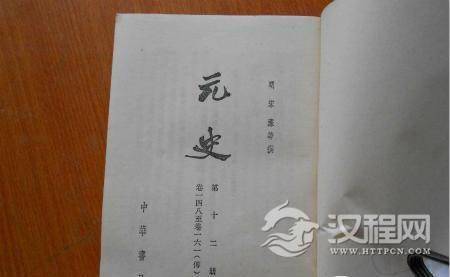 明宋濂等撰
元史
第十二册
卷一四八至卷一六一(传)
中华书
汉程网
WWW.HTTPCN.COM